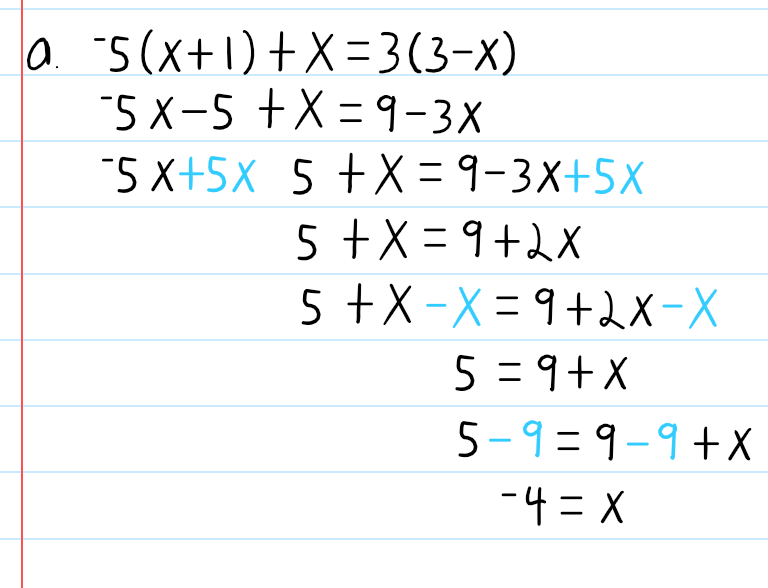 a. ⁻5(x+1)+x=3(3-x)
⁻5x-5 +x=9-3x
⁻5x+5x 5 +x=9-3x+5x
5 +x=9+2x
5 +x-x=9+2x-x
5=9+x
5-9=9-9+x
⁻4=x